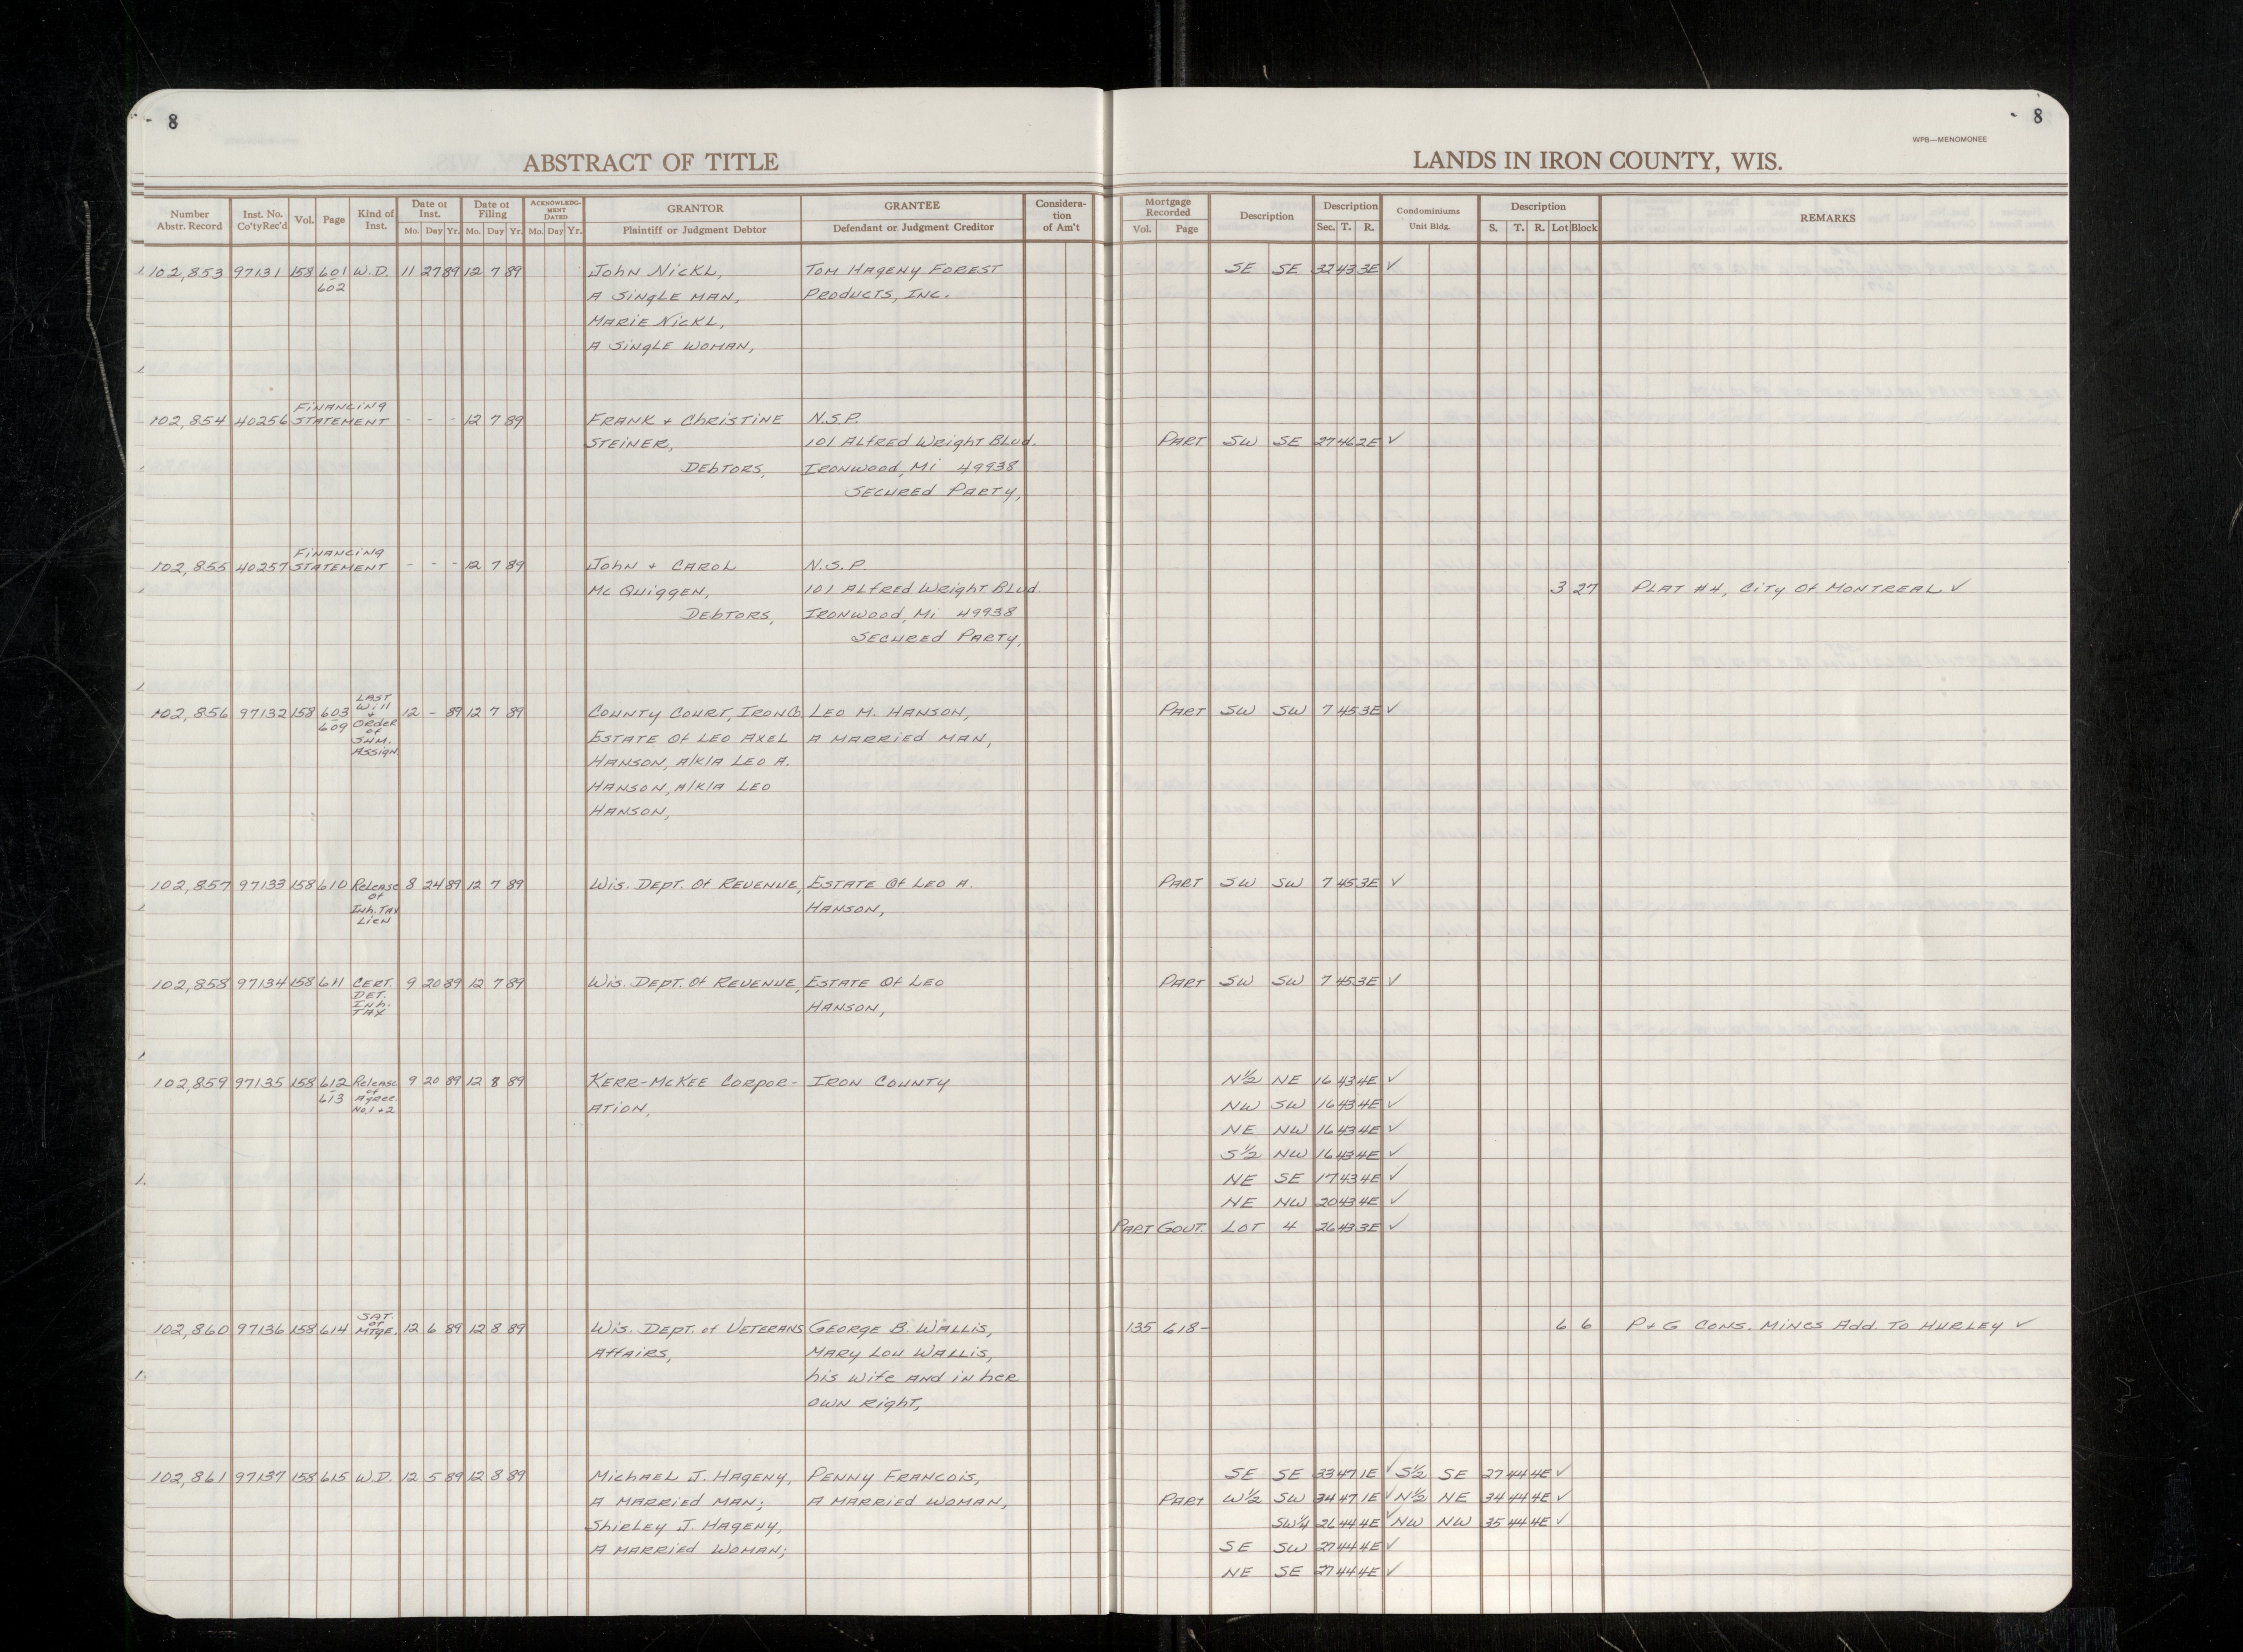 8
8
WPB—MENOMONEE
ABSTRACT OF TITLE
LANDS IN IRON COUNTY, WIS.
Number Abstr. Record
Inst. No. Co'ty Rec'd
Vol.
Page
Kind of Inst.
Date of Inst.
Mo. Day Yr.
Date of Filing
Mo. Day Yr.
ACKNOWLEDGMENT DATED
Mo. Day Yr.
GRANTOR
Plaintiff or Judgment Debtor
GRANTEE
Defendant or Judgment Creditor
Consideration of Am't
Mortgage Recorded
Vol. Page
Description
Description
Sec. T. R.
Condominiums
Unit Bldg.
Description
S. T. R. Lot Block
REMARKS
102,853 97131 158 601 W.D. 11 27 89 12 7 89 John Nickl, Tom Hageny Forest SE SE 32 43 3E ✓
602 A Single Man, Products, Inc.
Marie Nickl,
A Single Woman,
Financing
102,854 40256 Statement - - - 12 7 89 Frank + Christine N.S.P.
Steiner, 101 Alfred Wright Blvd. Part SW SE 27 46 2E ✓
Debtors, Ironwood, Mi 49938
Secured Party,
Financing
102,855 40257 Statement - - - 12 7 89 John + Carol N.S.P.
McQuiggen, 101 Alfred Wright Blvd. 3 27 Plat #4, City Of Montreal ✓
Debtors, Ironwood, Mi 49938
Secured Party,
102,856 97132 158 603-609 Last Will + Order of Sum. Assign. 12 - 89 12 7 89 County Court, Iron Co Leo M. Hanson, Part SW SW 7 45 3E ✓
Estate Of Leo Axel A Married Man,
Hanson, A/K/A Leo A.
Hanson, A/K/A Leo
Hanson,
102,857 97133 158 610 Release Of Inh. Tax Lien 8 24 89 12 7 89 Wis. Dept. Of Revenue, Estate Of Leo A. Part SW SW 7 45 3E ✓
Hanson,
102,858 97134 158 611 Cert. Det. Inh. Tax 9 20 89 12 7 89 Wis. Dept. Of Revenue, Estate Of Leo Part SW SW 7 45 3E ✓
Hanson,
102,859 97135 158 612-613 Release of Agree. No. 1 + 2 9 20 89 12 8 89 Kerr-McKee Corpor- Iron County N½ NE 16 43 4E ✓
ation, NW SW 16 43 4E ✓
NE NW 16 43 4E ✓
S½ NW 16 43 4E ✓
NE SE 17 43 4E ✓
NE NW 20 43 4E ✓
Part Govt. Lot 4 26 43 3E ✓
102,860 97136 158 614 Sat. of Mtge. 12 6 89 12 8 89 Wis. Dept. of Veterans George B. Wallis, 135 618- 6 6 P+G Cons. Mines Add. To Hurley ✓
Affairs, Mary Lou Wallis,
his wife and in her
own right,
102,861 97137 158 615 W.D. 12 5 89 12 8 89 Michael J. Hageny, Penny Francois, SE SE 33 47 1E ✓ S½ SE 27 44 4E ✓
A Married Man; A Married Woman, Part W½ SW 34 47 1E ✓ N½ NE 34 44 4E ✓
Shirley J. Hageny, SW¼ 26 44 4E ✓ NW NW 35 44 4E ✓
A Married Woman; SE SW 27 44 4E ✓
NE SE 27 44 4E ✓